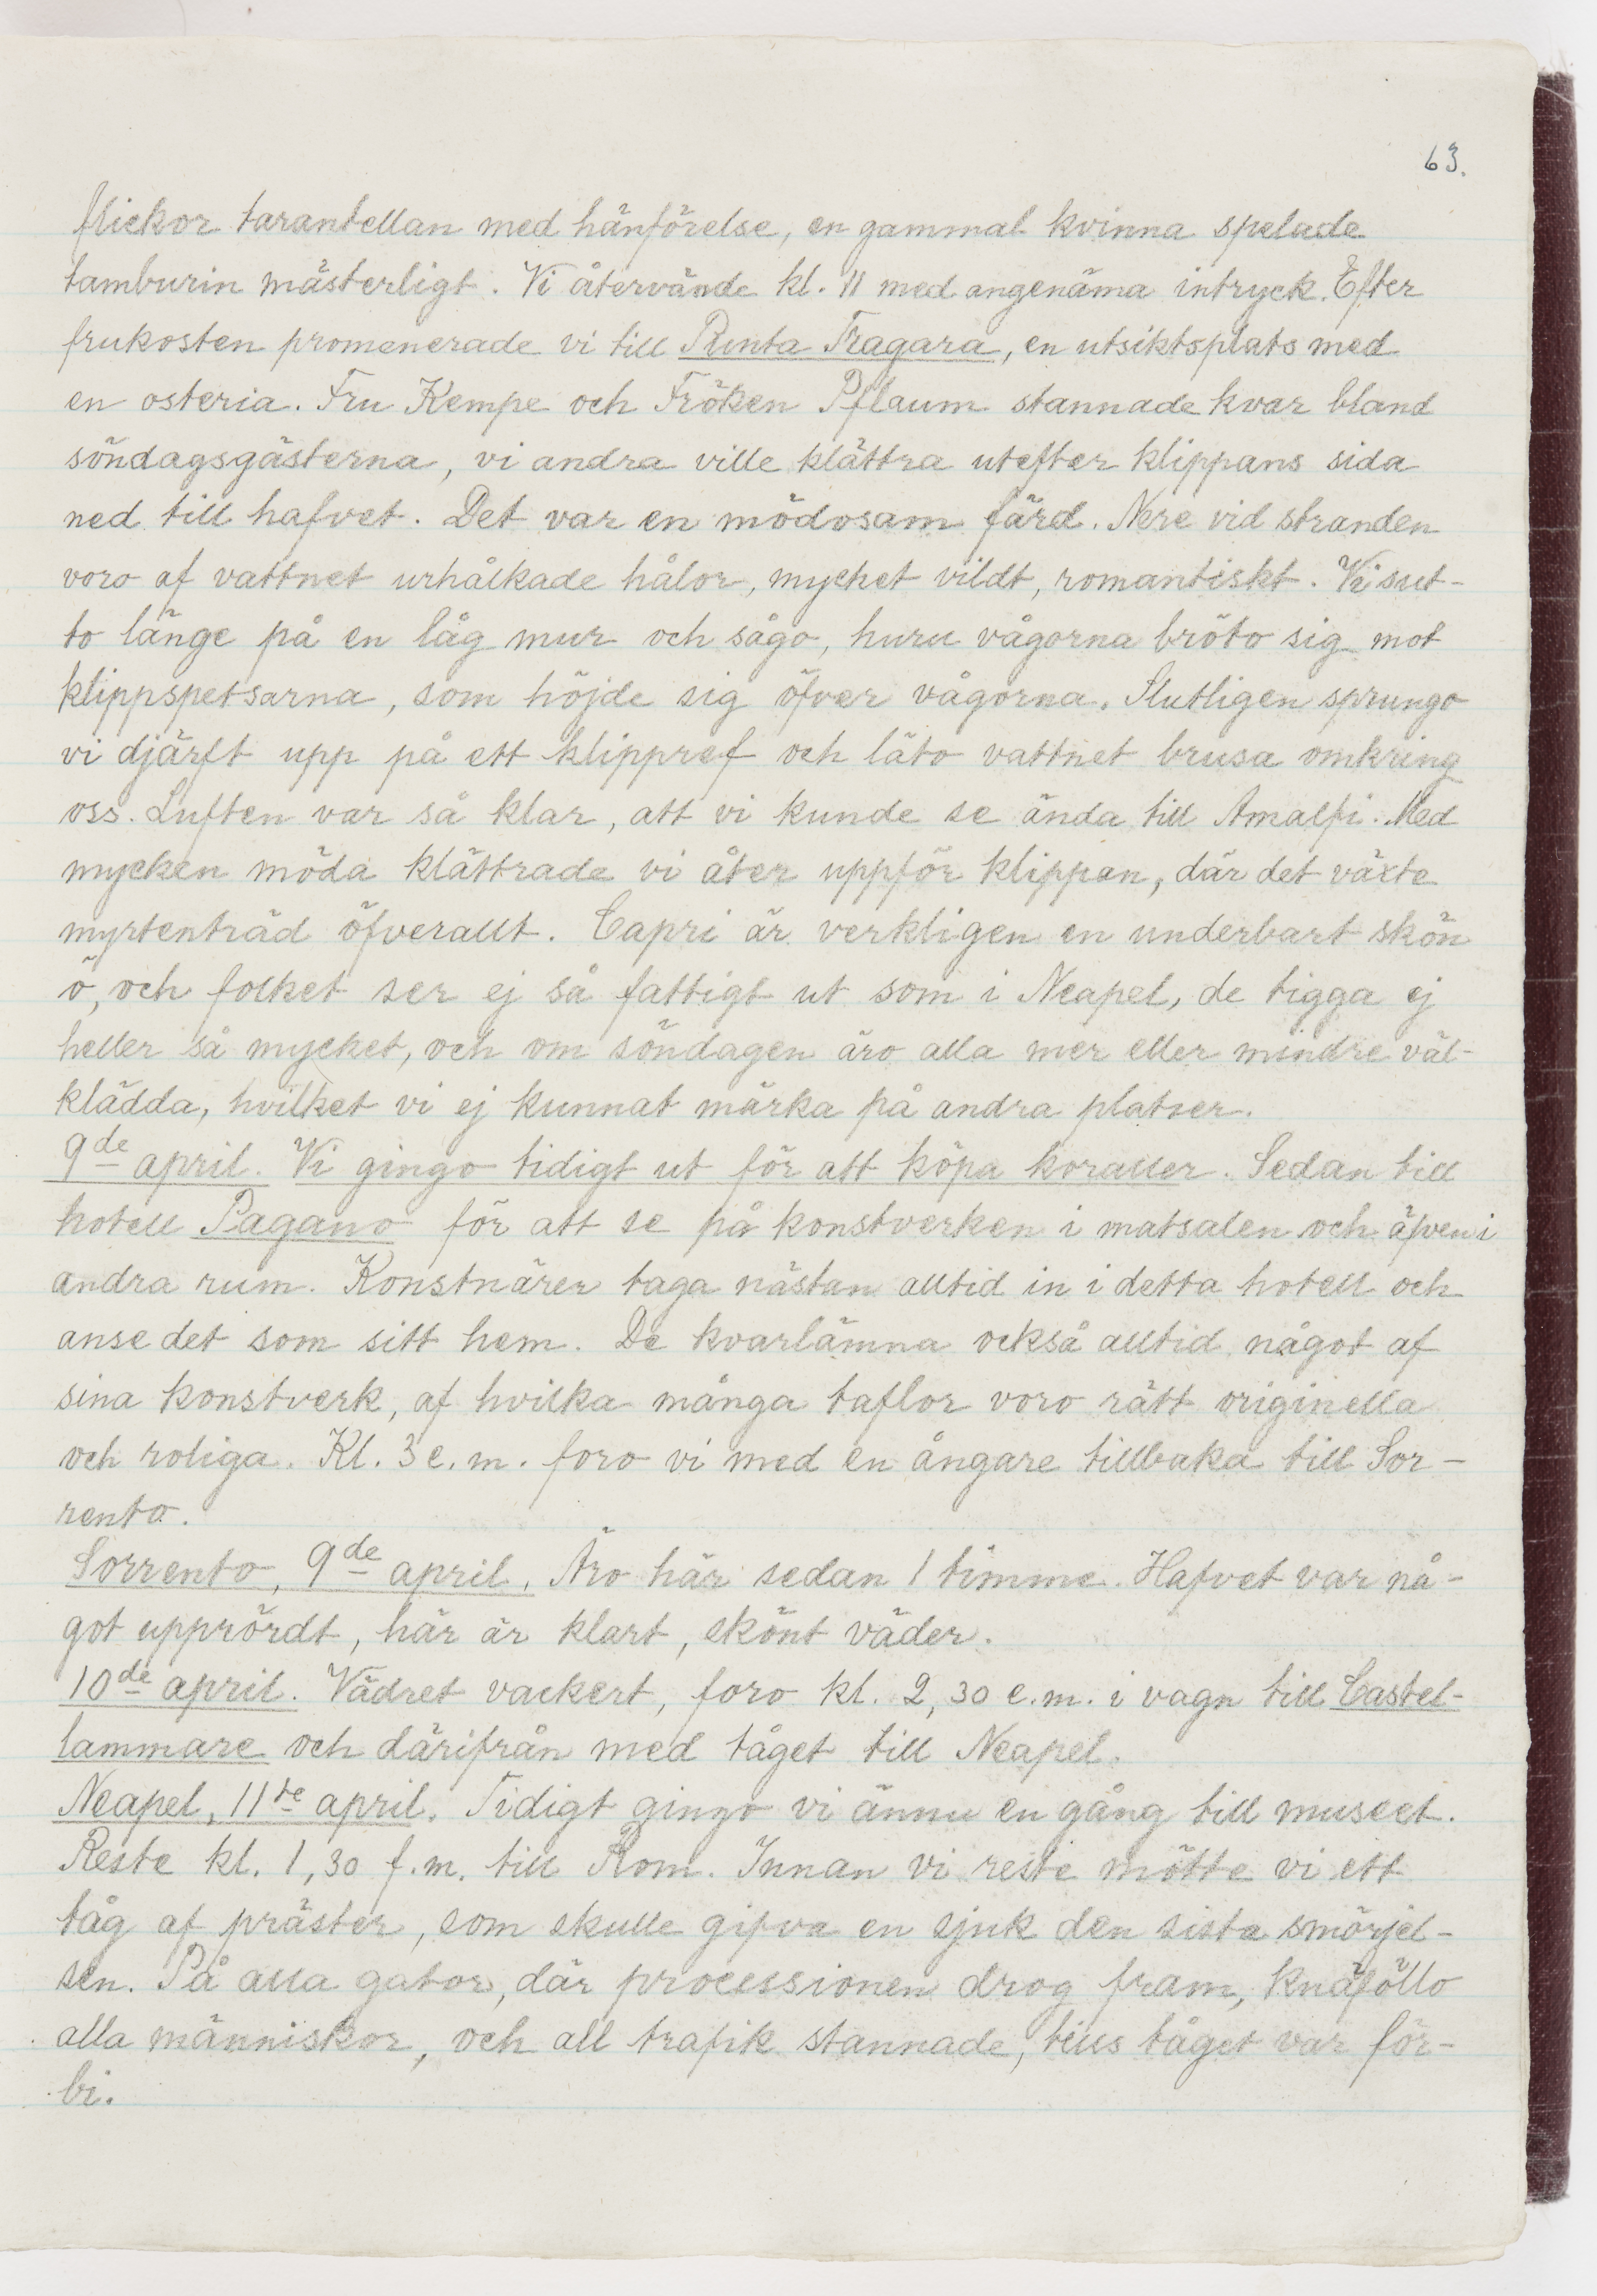 63.
flickor tarantellan med hänförelse, en gammal kvinna spelade
tamburin mästerligt. Vi återvände kl. 11 med angenäma intryck. Efter
frukosten promenerade vi till Punta Tragara, en utsiktsplats med
en osteria. Fru Kempe och Fröken Pflaum stannade kvar bland
söndagsgästerna, vi andra ville klättra utefter klippans sida
ned till hafvet. Det var en mödosam färd. Nere vid stranden
voro af vattnet urhålkade hålor, mycket vildt, romantiskt. Vi sut-
to länge på en låg mur och sågo, huru vågorna bröto sig mot
klippspetsarna, som höjde sig öfver vågorna. Slutligen sprungo
vi djärft upp på ett klippref och läto vattnet brusa omkring
oss. Luften var så klar, att vi kunde se ända till Amalfi. Med
mycken möda klättrade vi åter uppför klippan, där det växte
myrtenträd öfverallt. Capri är verkligen en underbart skön
ö, och folket ser ej så fattigt ut som i Neapel, de tigga ej
heller så mycket, och om söndagen äro alla mer eller mindre väl-
klädda, hvilket vi ej kunnat märka på andra platser.
9de april. Vi gingo tidigt ut för att köpa koraller. Sedan till
hotell Pagano för att se på konstverken i matsalen och äfven i
andra rum. Konstnärer taga nästan alltid in i detta hotell och
anse det som sitt hem. De kvarlämna också alltid något af
sina konstverk, af hvilka många taflor voro rätt originella
och roliga. Kl. 3 e.m. foro vi med en ångare tillbaka till Sor-
rento.
Sorrento, 9de april. Äro här sedan 1 timme. Hafvet var nå-
got upprördt, här är klart, skönt väder.
10de april. Vädret vackert, foro kl. 2,30 e.m. i vagn till Castel-
lammare och därifrån med tåget till Neapel.
Neapel, 11te april. Tidigt gingo vi ännu en gång till museet.
Reste kl. 1,30 f.m. till Rom. Innan vi reste mötte vi ett
tåg af präster, som skulle gifva en sjuk den sista smörjel-
sen. På alla gator, där processionen drog fram, knäföllo
alla människor, och all trafik stannade, tills tåget var för-
bi.